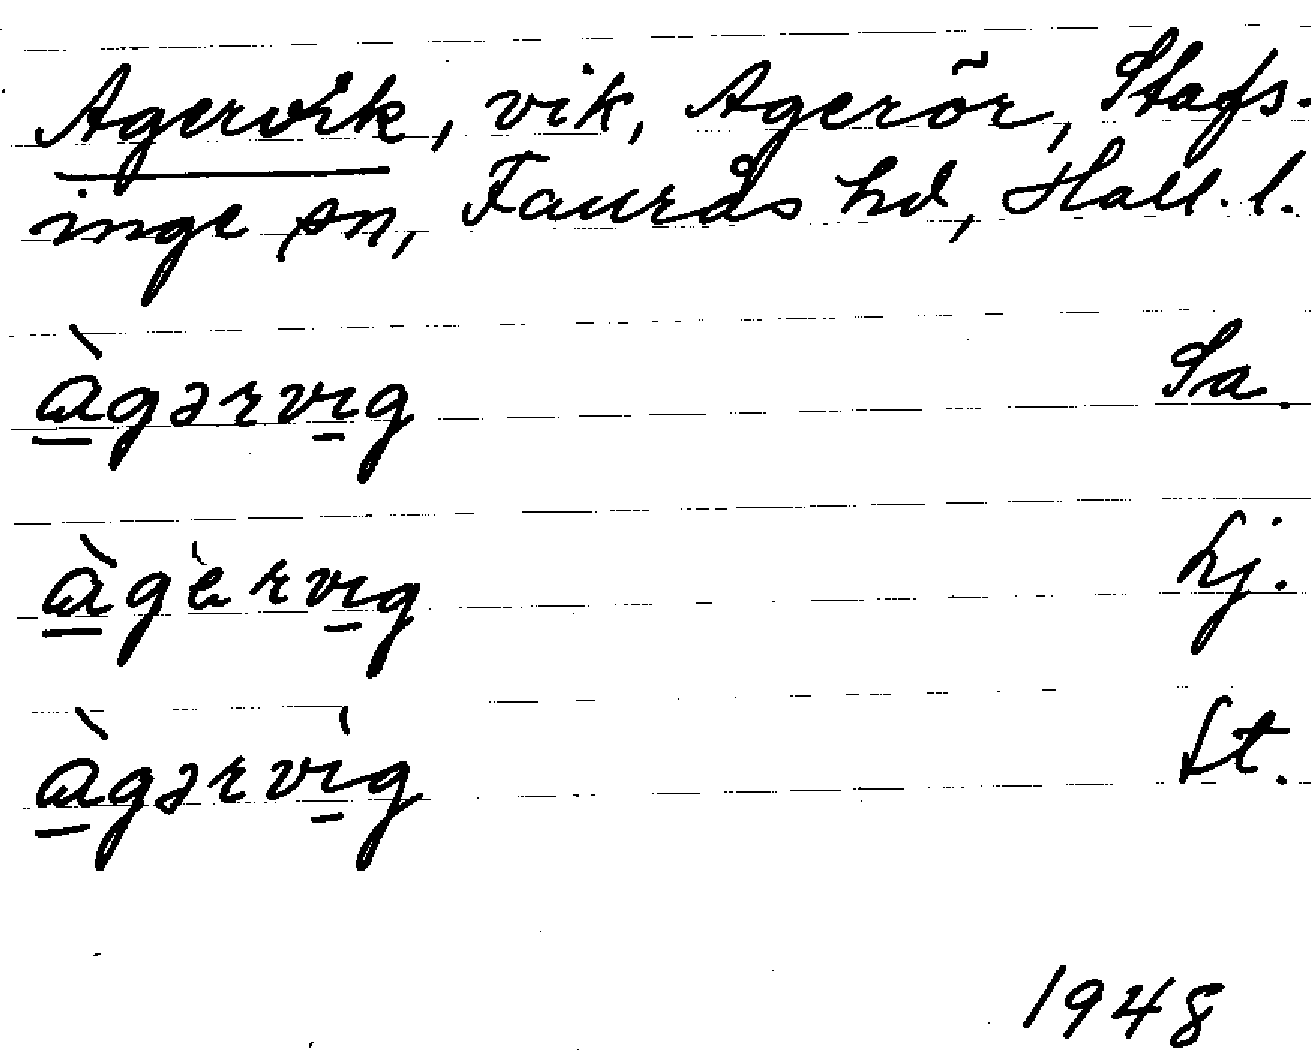 Agervik, vik, Agerör, Stafs-
inge sn, Faurås hd, Hall. l.
àgərvıg Sa.
àgèrvıg Lj.
àgərvìg St.
1948